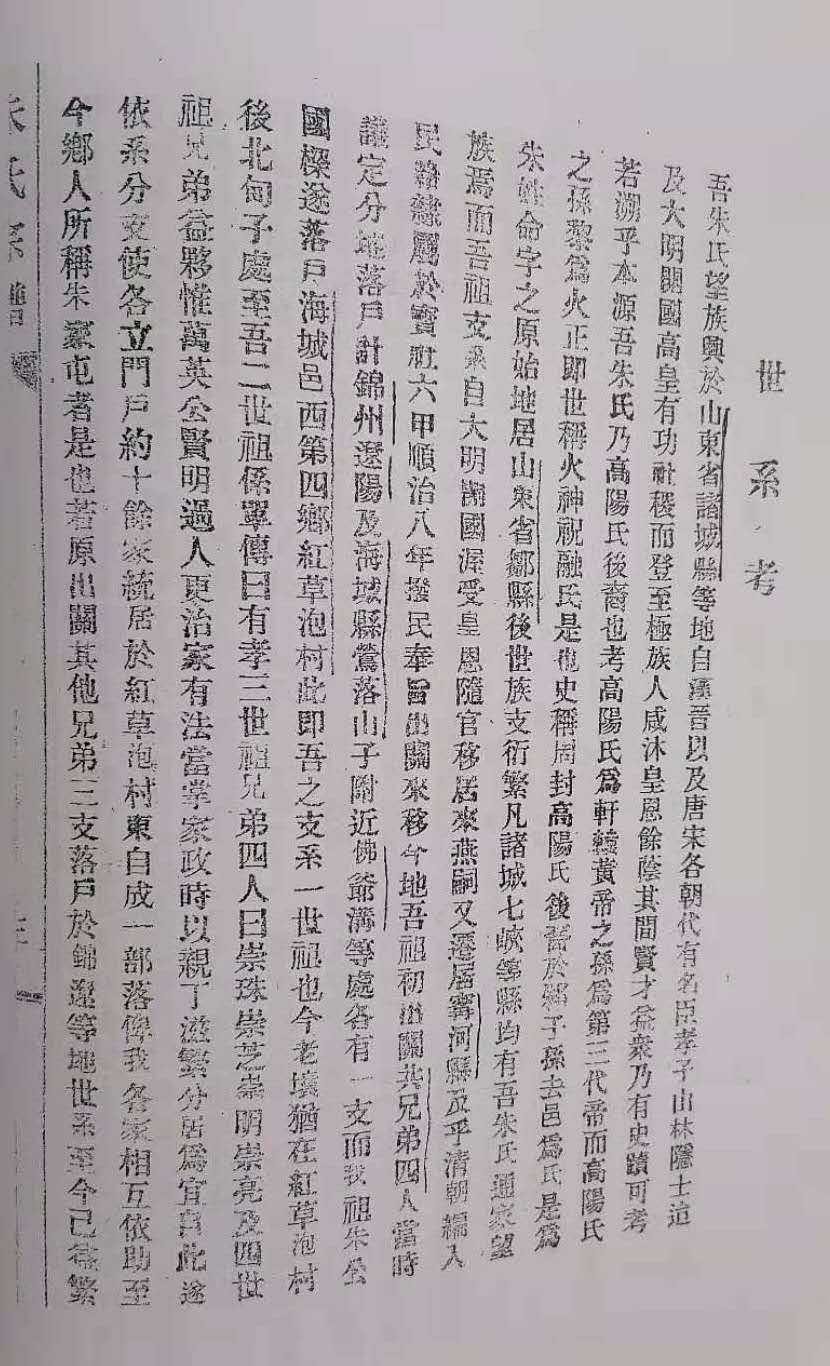 世系考
吾朱氏望族興於山東省諸城縣等地自漢晉以及唐宋各朝代有名臣孝子山林隱士迨
及大明開國高皇有功社稷而登至極族人咸沐皇恩餘蔭其間賢才益衆乃有史蹟可考
若溯乎本源吾朱氏乃高陽氏後裔也考高陽氏為軒轅黃帝之孫為第三代帝而高陽氏
之孫黎為火正即世稱火神祝融氏是也史稱周封高陽氏後裔於邾子孫去邑為氏是為
朱姓命字之原始地居山東省鄒縣後世族支衍繁凡諸城七峽等縣均有吾朱氏通家望
族焉而吾祖支系自大明開國渥受皇恩隨官移居來燕嗣又遷居寗河縣及乎清朝編入
民籍隸屬於寶社六甲順治八年撥民奉旨出關來移今地吾祖初出關共兄弟四人當時
議定分地落戶計錦州遼陽及海城縣鶯落山子附近佛爺溝等處各有一支而我祖朱公
國樑遂落戶海城邑西第四鄉紅草泡村此即吾之支系一世祖也今老壙猶在紅草泡村
後北甸子處至吾二世祖係單傳曰有孝三世祖兄弟四人曰崇珠崇芝崇明崇亮及四世
祖兄弟益夥惟萬英公賢明過人更治家有法當掌家政時以親丁滋繁分居為宜自此遂
依系分支使各立門戶約十餘家統居於紅草泡村東自成一部落俾我各家相互依助至
今鄉人所稱朱家屯者是也若原出關其他兄弟三支落戶於錦遼等地世系至今已蕃繁
朱氏系譜